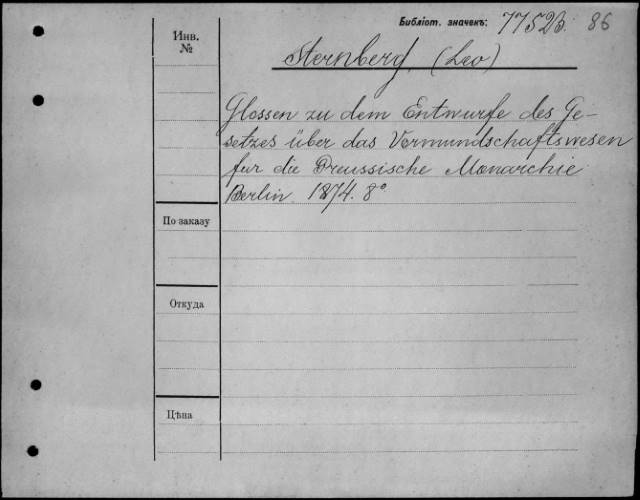 Библіот. значекъ: 7752B. 86
Инв.
№
Sternberg, (Leo)
Glossen zu dem Entwurfe des Ge-
setzes über das Vormundschaftswesen
fur die Preussische Monarchie
Berlin. 1874. 8°
По заказу
Откуда
Цѣна